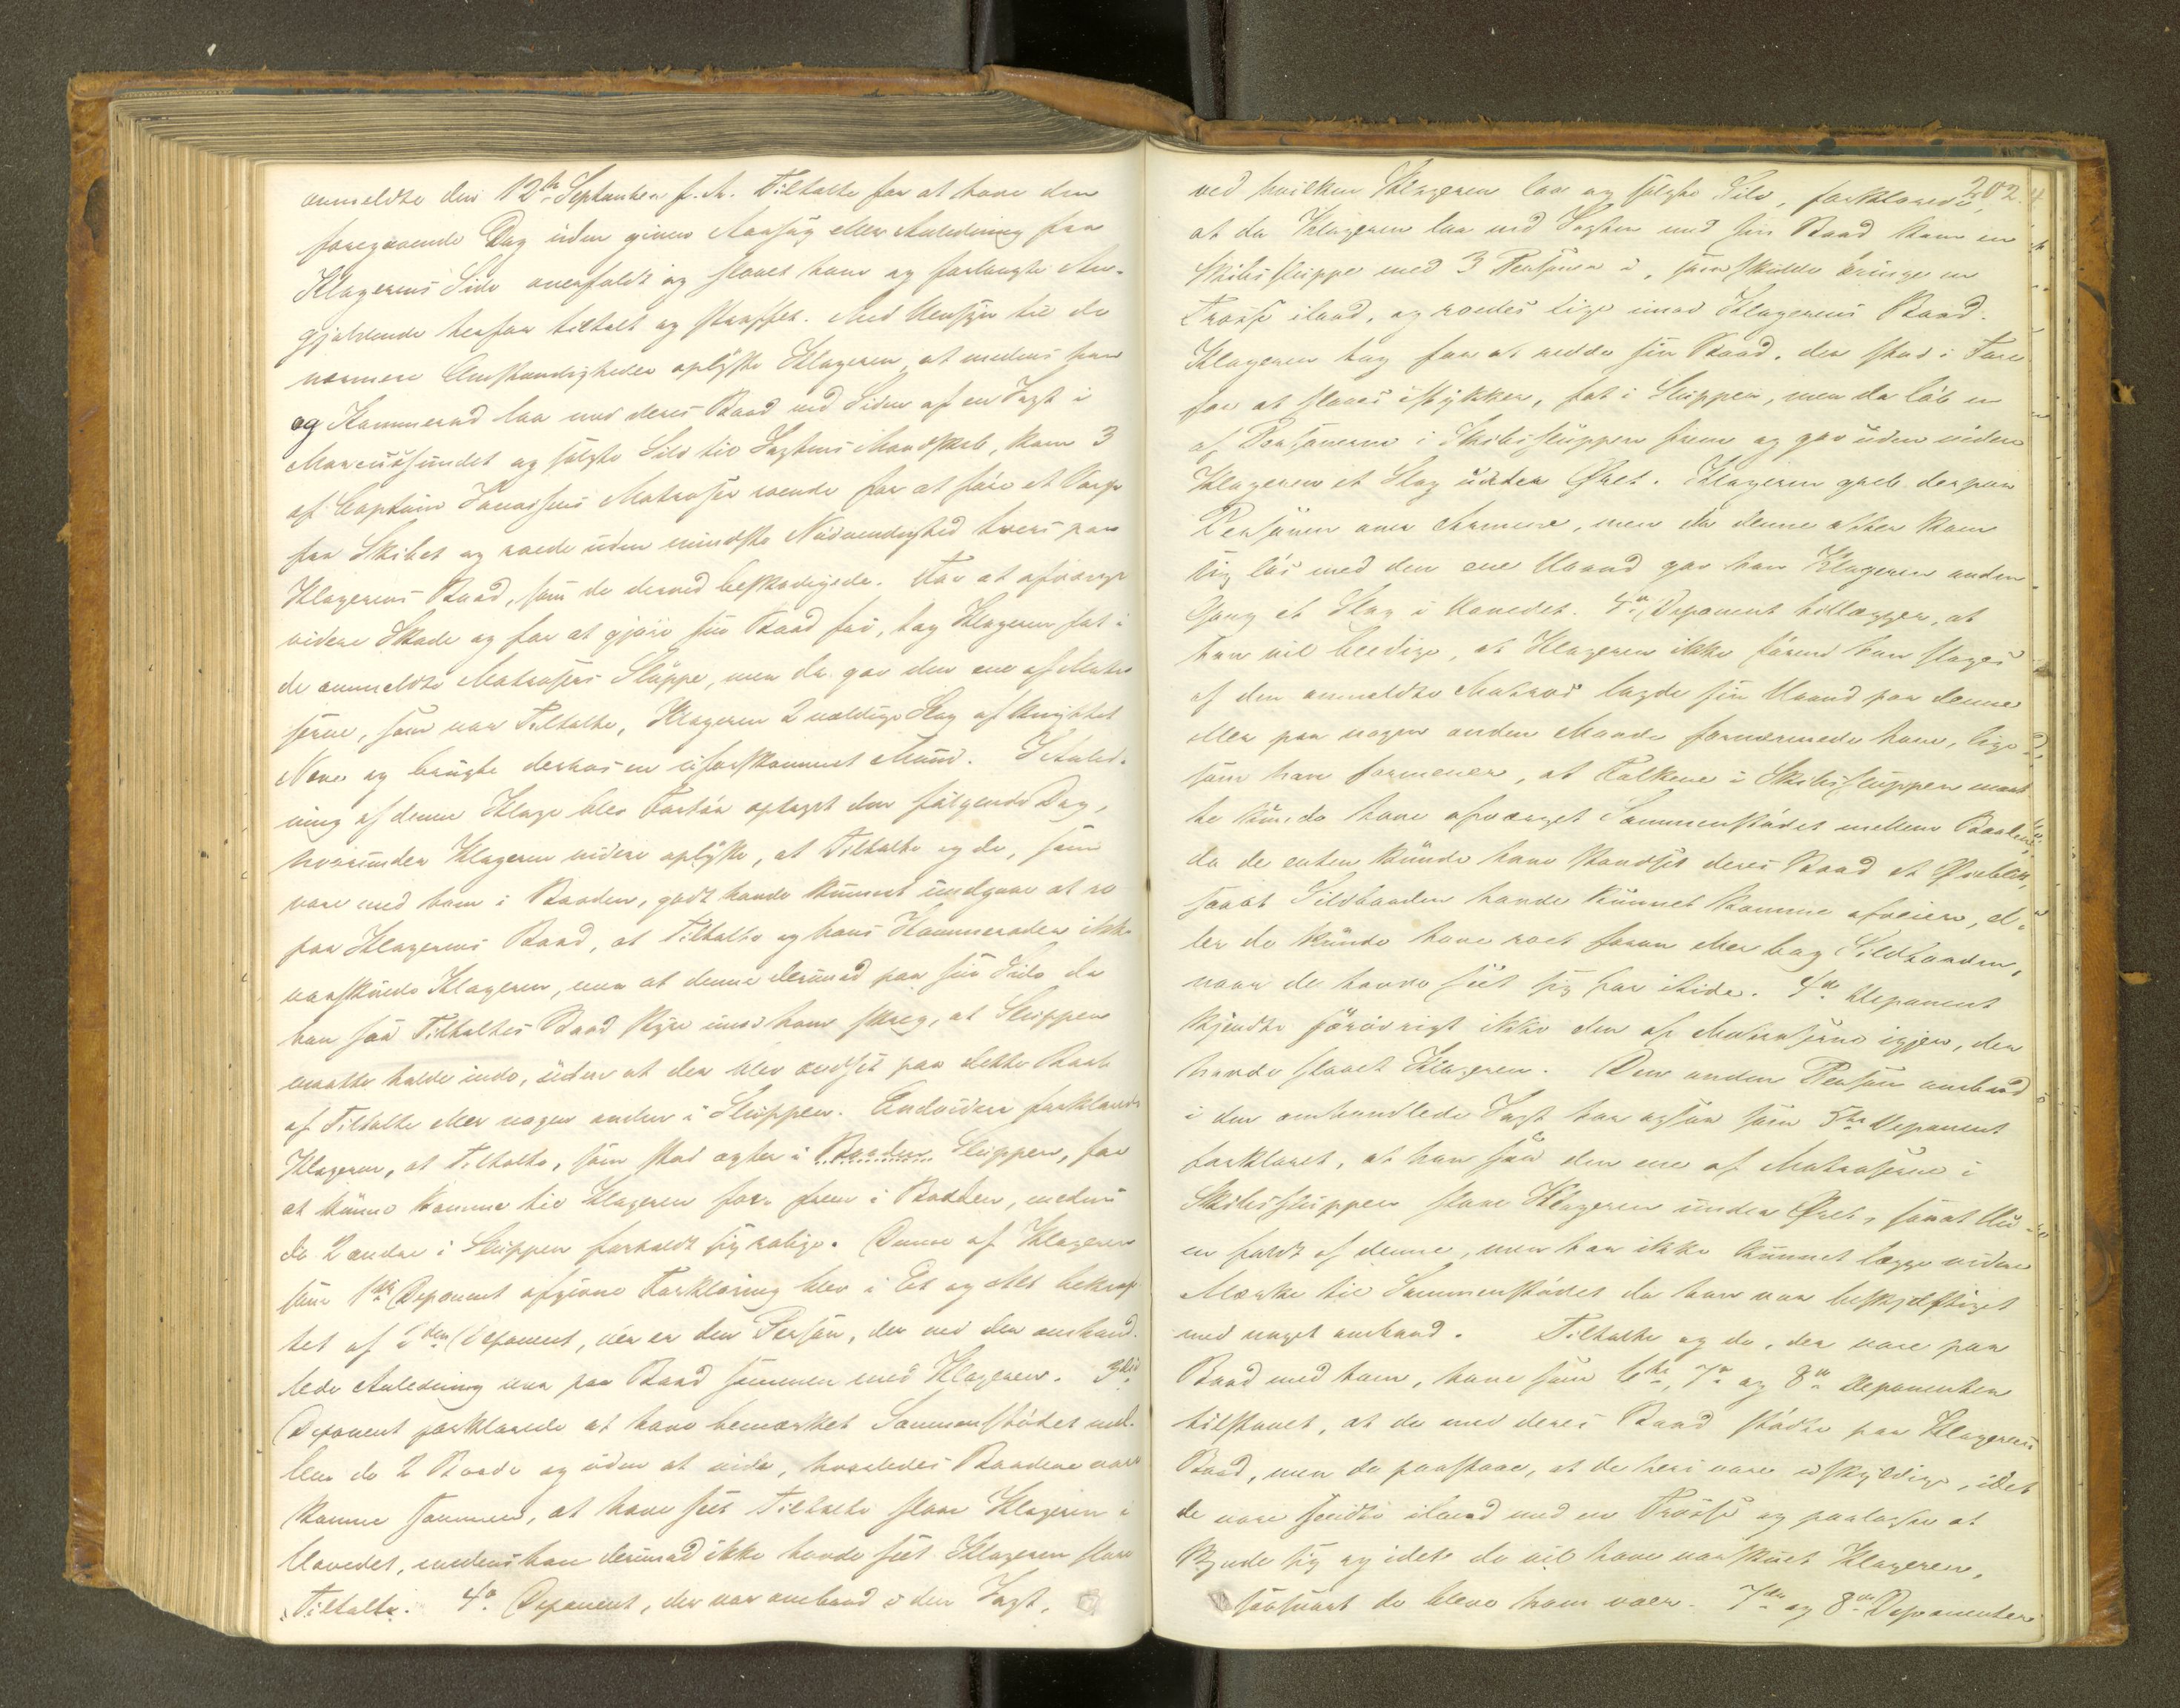 anmeldte den 12te September f. A. Tiltalte for at have den
foregaaende Dag uden given Aarsag eller Anledning fra
Klagerens Side overfaldt og slaaet ham og forlangte Ved-
gjældende herfor tiltalt og straffet. Med Hensyn til de
nærmere Omstændigheder oplyste Klageren, at medens han
og Kammerad laa med deres Baad ved Siden af en Jagt i
Marcussundet og solgte Sild til Jagtens Mandskab, kom 3
af Captain Matroser roende for at føre et Varp
fra Skibet og roede uden mindste Nødvendighed tvers paa
Klagerens Baad, som de derved beskadigede. For at afværge
videre Skade og for at gjøre sin Baad fri, tog Klageren fat i
de anmeldte Matrosers Sluppe, men da gav den ene af Matro
serne, som var Tiltalte, Klageren 2 vældige Slag af knyttet
Næve og brugte derhos en uforskammet Mund. I Anled-
ning af denne Klage blev Forhør optaget den følgende Dag,
hvorunder Klageren videre oplyste, at Tiltalte og de, som
vare med ham i Baaden, godt havde kunnet undgaae at ro
paa Klagerens Baad, at Tiltalte og hans Kammerader ikke
varskuede Klageren, men at denne derimod paa sin Side da
han saa Tiltaltes Baad styre imod ham skreg, at Sluppen
maatte holde inde, uden at der blev ændset paa dette Raab
af Tiltalte eller nogen anden i Sluppen. Endvidere forklarede
Klageren, at Tiltalte, som stod agter i Baaden Sluppen, for
at kunne komme til Klageren foer frem i Baaden, medens
de 2 andre i Sluppen forholdt sig rolige. Denne af Klageren
som 1ste Deponent afgivne Forklaring blev i Et og Alt bekræf
tet af 2den Deponent, der er den Person, der ved den omhand-
lede Anledning var paa Baad sammen med Klageren. 3die
Deponent forklarede at have bemærket Sammenstødet mel-
lem de 2 Baade og uden at vide, hvorledes Baadene vare
komne sammen, at have seet Tiltalte slaae Klageren i
Hovedet, medens han derimod ikke havde seet Klageren slaae
Tiltalte. 4de Deponent, der var ombord i den Jagt,
202.
ved hvilken Klageren laa og solgte Sild, forklarede,
at da Klageren laa ved Jagten med sin Baad kom en
Skibssluppe med 3 Personer i, som skulde bringe en
Trosse iland, og roedes lige imod Klagerens Baad.
Klageren tog for at redde sin Baad, der stod i Fare
for at slaaes istykker, fat i Sluppen, men da løb en
af Personerne i Skibssluppen frem og gav uden videre
Klageren et Slag under Øret. Klageren greb derpaa
Personen om Armene, men da denne atter kom
sig løs med den ene Haand gav han Klageren anden
Gang et Slag i Hovedet. 4de Deponent tillægger, at
han vil beedige, at Klageren ikke førend han sloges
af den anmeldte Matros lagde sin Haand paa denne
eller paa nogen anden Maade fornærmede ham, lige
som han formener, at Folkene i Skibssluppen maat
te kunde have afværget Sammenstødet mellem Baadene,
da de enten kunde have standset deres Baad et Øieblik,
saaat Sildbaaden havde kunnet komme afveien, el-
ler de kunde have roet foran eller bag Sildbaaden,
naar de havde seet sig for itide. 4de Deponent
kjendte forøvrigt ikke den af Matroserne igjen, der
havde slaaet Klageren. Den anden Person ombord
i den omhandlede Jagt har ogsaa som 5te Deponent
forklaret, at han saa den ene af Matroserne i
Skibssluppen slaae Klageren under Øret, saaat Hu-
en faldt af denne, men har ikke kunnet lægge videre
Mærke til Sammenstødet da han var beskjæftiget
med noget ombord. Tiltalte og de, der vare paa
Baad med ham, have som 6te, 7de og 8de Deponenter
tilstaaet, at de med deres Baad stødte paa Klagerens
Baad, men de paastaae, at de heri vare uskyldige, idet
de vare sendte iland med en Trosse og paalagte at
skynde sig og idet de vil have varskuet Klageren,
saasnart de bleve ham vaer. 7de og 8de Deponenter